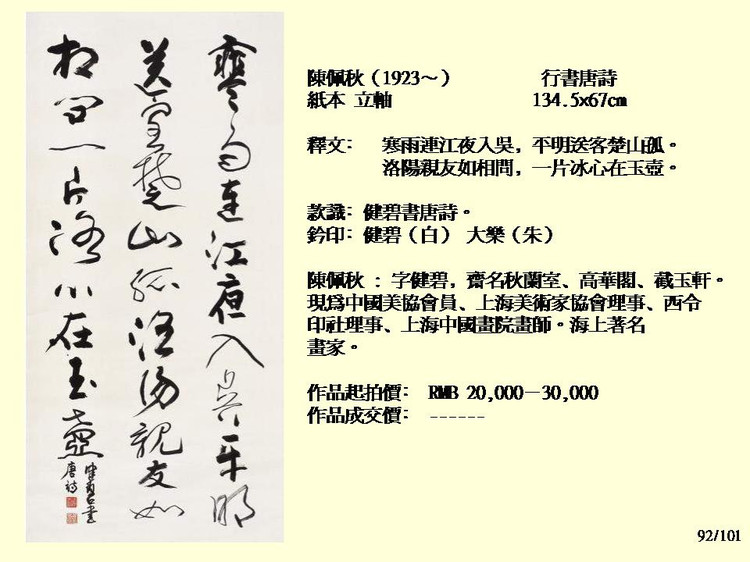 寒雨連江夜入吳平明
送客楚山孤洛陽親友如
相問一片冰心在玉壺
健碧書
唐詩
陳佩秋（1923～） 行書唐詩
紙本 立軸 134.5x67cm
釋文: 寒雨連江夜入吳，平明送客楚山孤。
洛陽親友如相問，一片冰心在玉壺。
款識: 健碧書唐詩。
鈐印: 健碧（白） 大樂（朱）
陳佩秋 : 字健碧，齋名秋蘭室、高華閣、截玉軒。
現為中國美協會員、上海美術家協會理事、西令
印社理事、上海中國畫院畫師。海上著名
畫家。
作品起拍價: RMB 20,000－30,000
作品成交價: ------
92/101